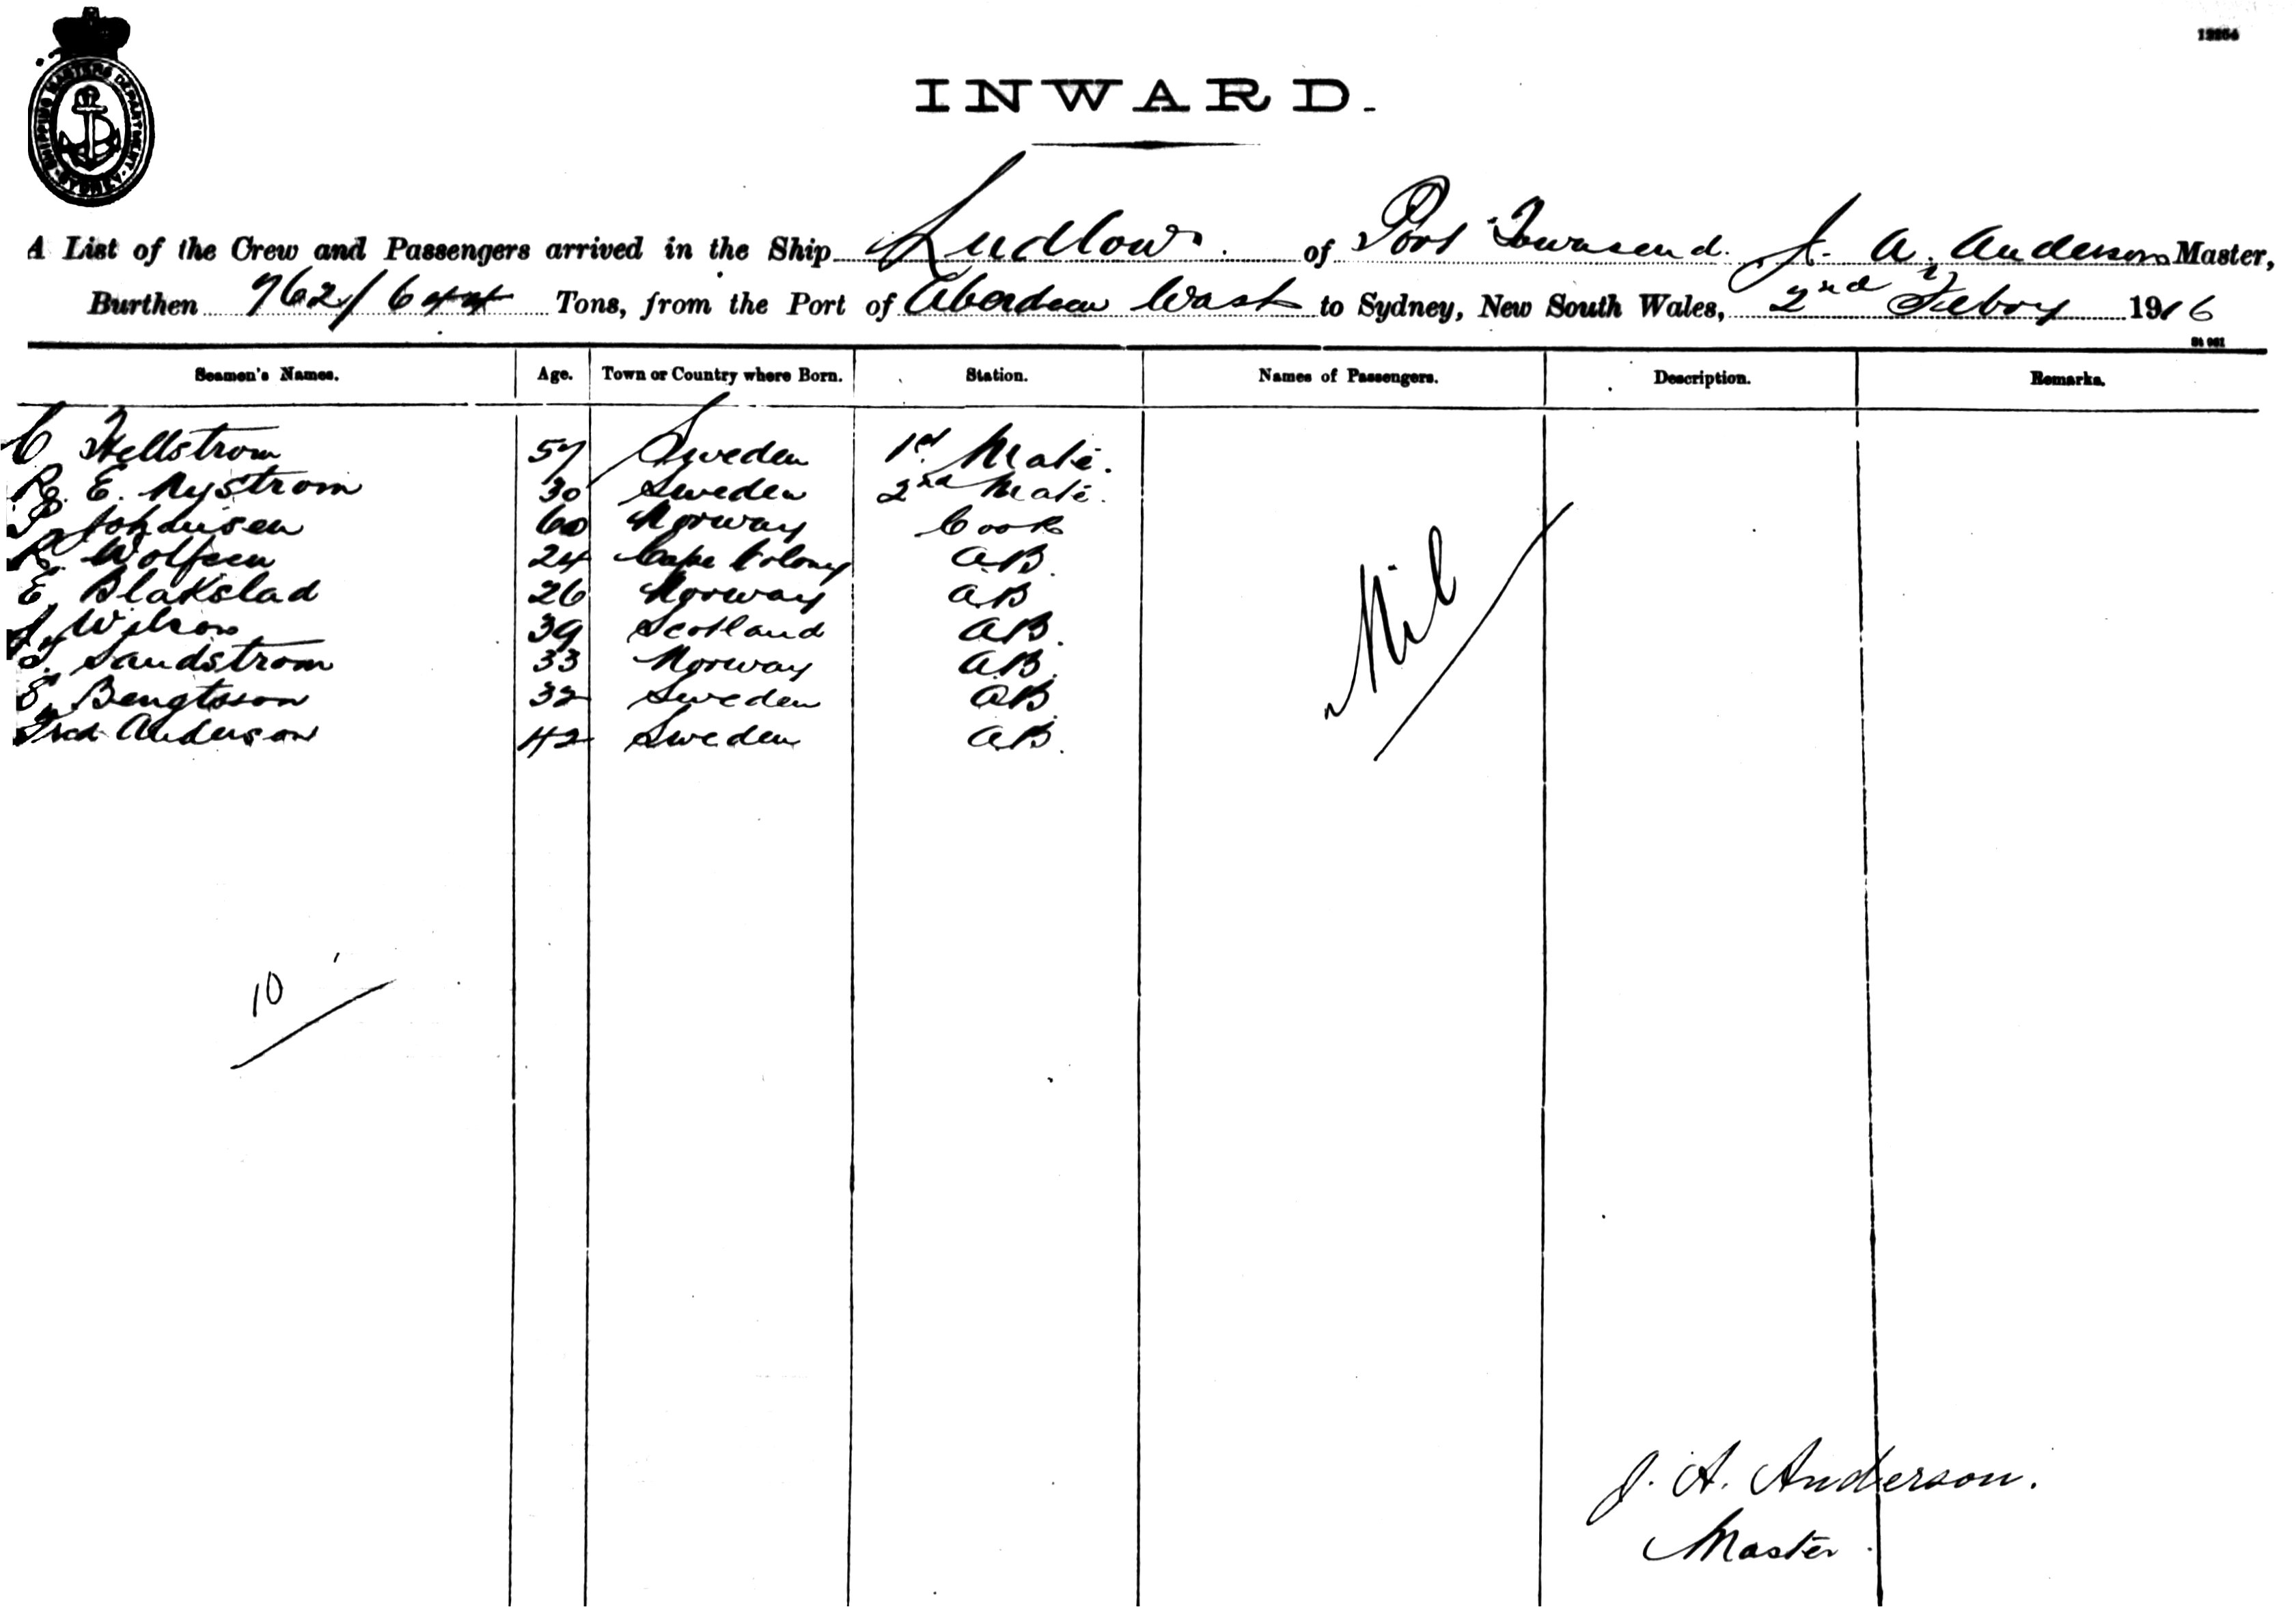 12264
SHIPPING MASTERS DEPARTMENT
SYDNEY
INWARD.
A List of the Crew and Passengers arrived in the Ship Ludlow of Port Townsend. J. A. Anderson Master,
Burthen 962/644 Tons, from the Port of Aberdeen Wash to Sydney, New South Wales, 2nd Febry 1916
Seamen's Names. Age. Town or Country where Born. Station. Names of Passengers. Description. Remarks.
C Hellstrom 57 Sweden 1st Mate.
E. Nystrom 30 Sweden 2nd Mate.
Johnnisen 60 Norway Cook
R. Wolfsen 24 Cape Colony AB.
E. Blakslad 26 Norway AB
Wilson 39 Scotland AB.
Sandstrom 33 Norway AB.
Bengtsson 32 Sweden AB
Fred Anderson 42 Sweden AB.
Nil
10
J. A. Anderson.
Master.